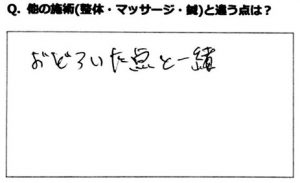 Q. 他の施術(整体・マッサージ・鍼)と違う点は？
おどろいた点と一緒